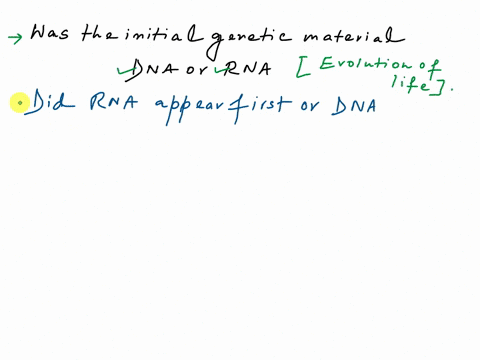 → Was the initial genetic material
✓DNA or ✓RNA [Evolution of
life].
• Did RNA appear first or DNA